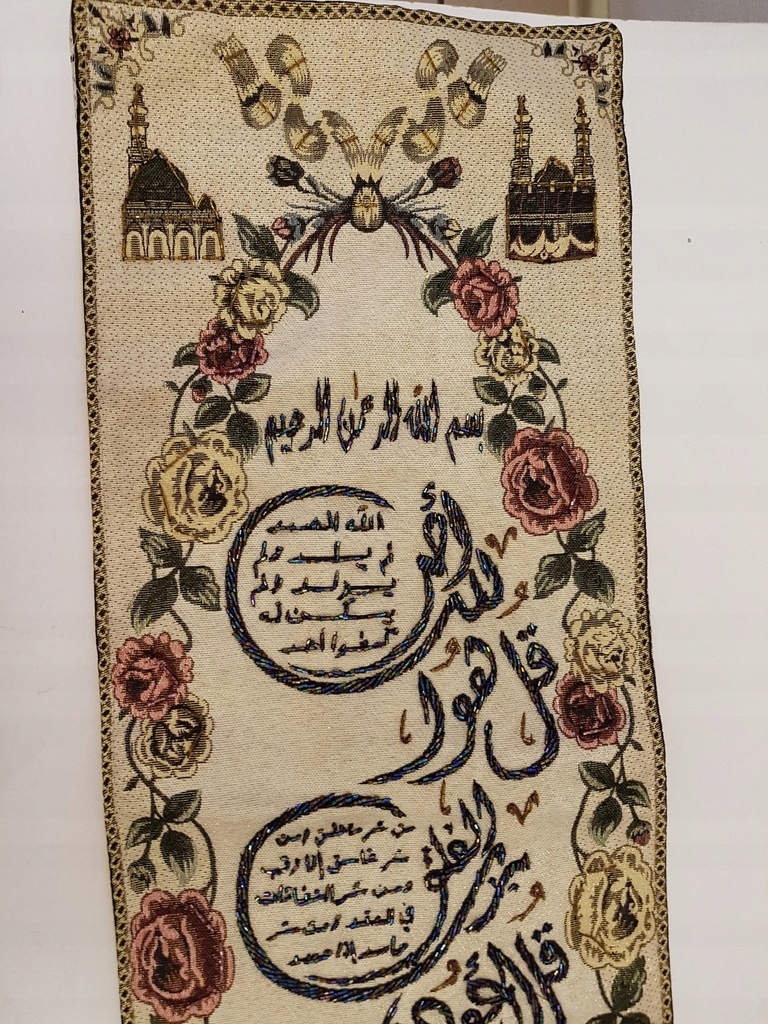 بسم الله الرحمن الرحيم
قل هوا
الله الصمد
لم يلد ولم
يولد ولم
يكن له
كفوا أحد
قل أعوذ
الفلق
من شر ما خلق ومن
شر غاسق إذا وقب
ومن شر النفاثات
في العقد ومن شر
حاسد إذا حسد